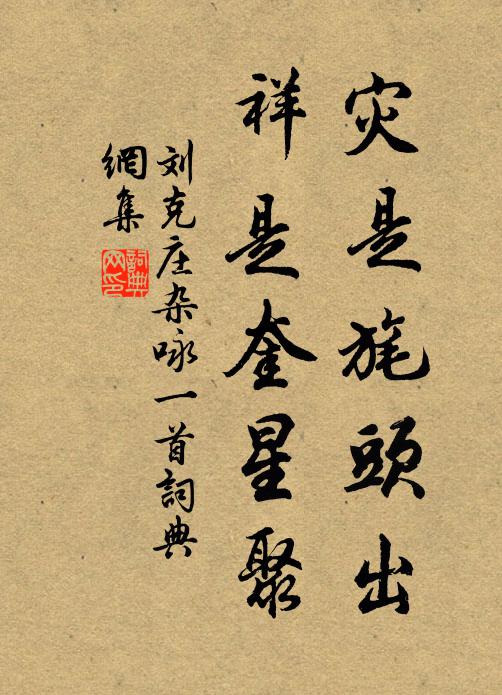 灾是旄頭出
祥是奎星聚
刘克庄杂咏一首詞典
網集
詞典
网印